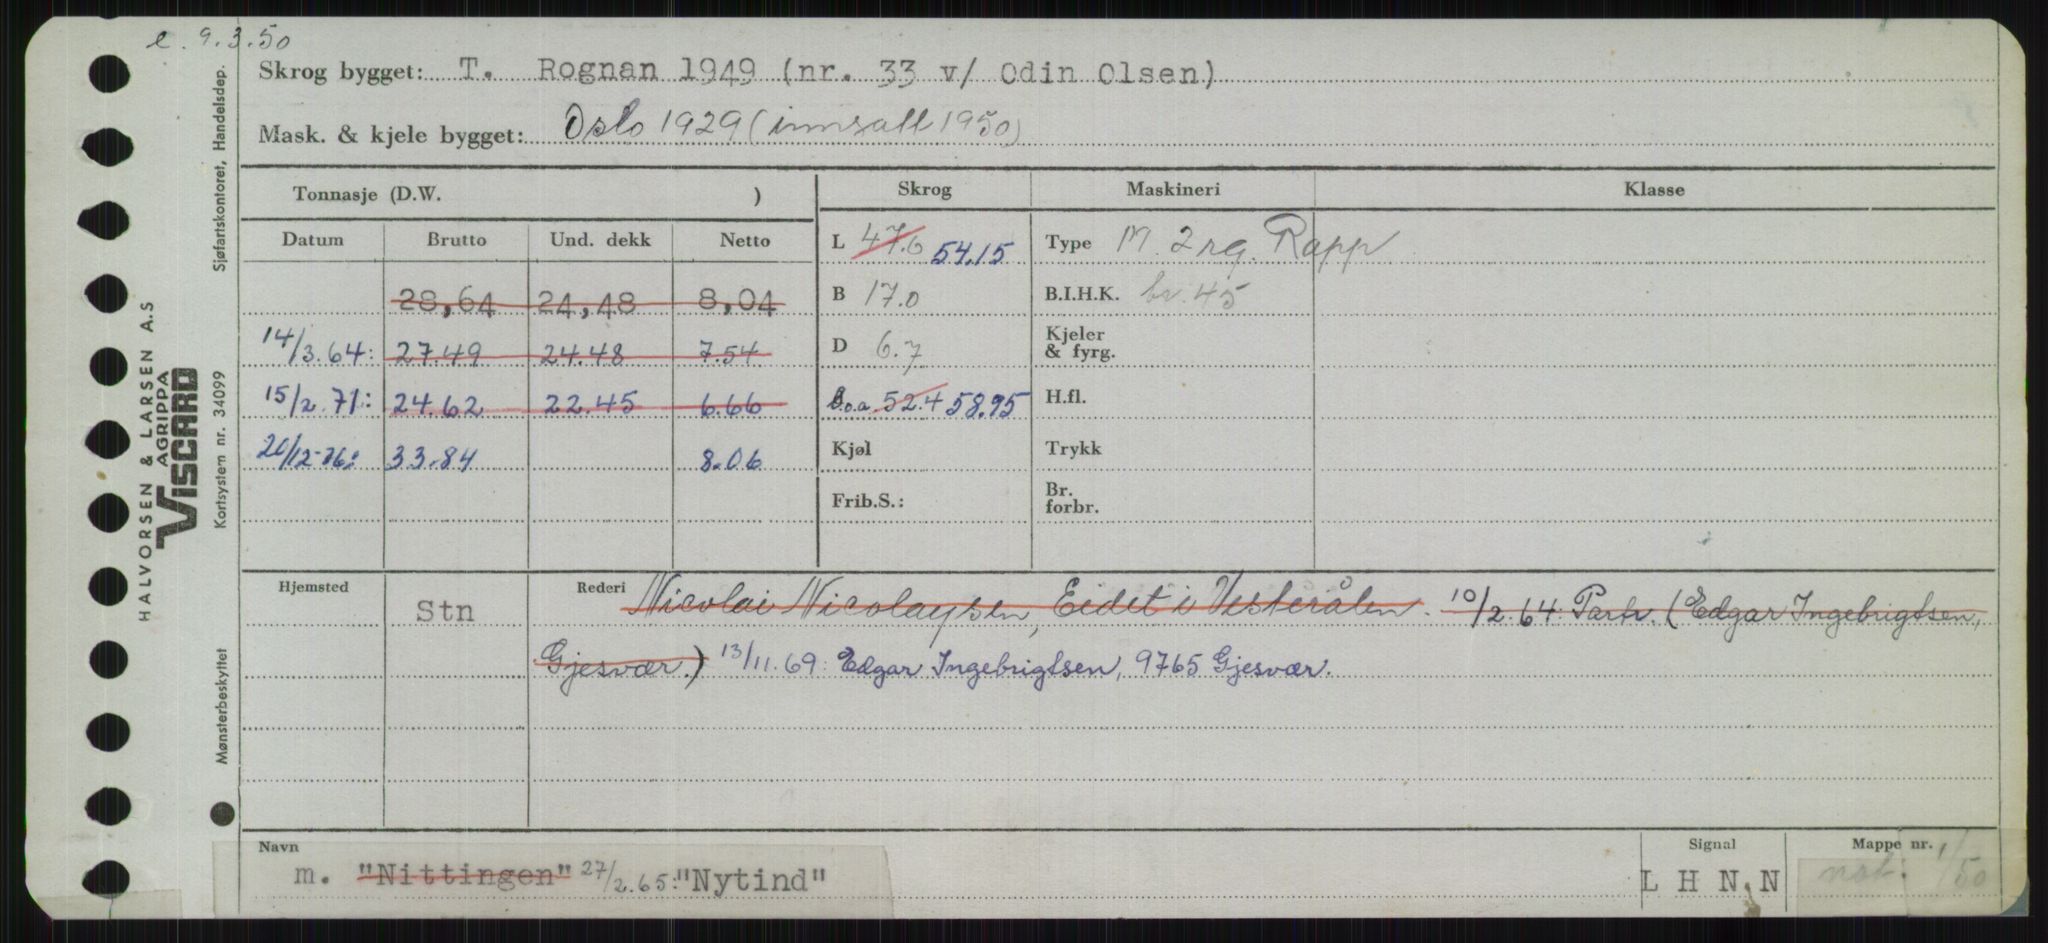 e. 9.3.50
Skrog bygget: T. Rognan 1949 (nr. 33 v/ Odin Olsen)
Mask. & kjele bygget: Oslo 1929 (innsatt 1950)
Tonnasje (D.W. )
Skrog Maskineri Klasse
Datum Brutto Und. dekk Netto
L 47.6 54.15 Type M. 2 rg. Rapp
28,64 24,48 8,04
B 17.0 B.I.H.K. br. 45
14/3.64: 27.49 24.48 7.54
D 6.7 Kjeler & fyrg.
15/2.71: 24.62 22.45 6.66
L.o.a. 52.4 58.95 H.fl.
20/12-76: 33.84 8.06
Kjøl Trykk
Frib.S.: Br. forbr.
Hjemsted Stn Rederi Nicolai Nicolaysen, Eidet i Vesterålen. 10/2.64: Partr. (Edgar Ingebrigtsen,
Gjesvær.) 13/11.69: Edgar Ingebrigtsen, 9765 Gjesvær.
Navn Signal Mappe nr.
m. "Nittingen" 27/2.65: "Nytind" L H N N not. 1/50
HALVORSEN & LARSEN A.S
AGRIPPA
VISCARD
Sjøfartskontoret, Handelsdep.
Kortsystem nr. 34099
Mønsterbeskyttet